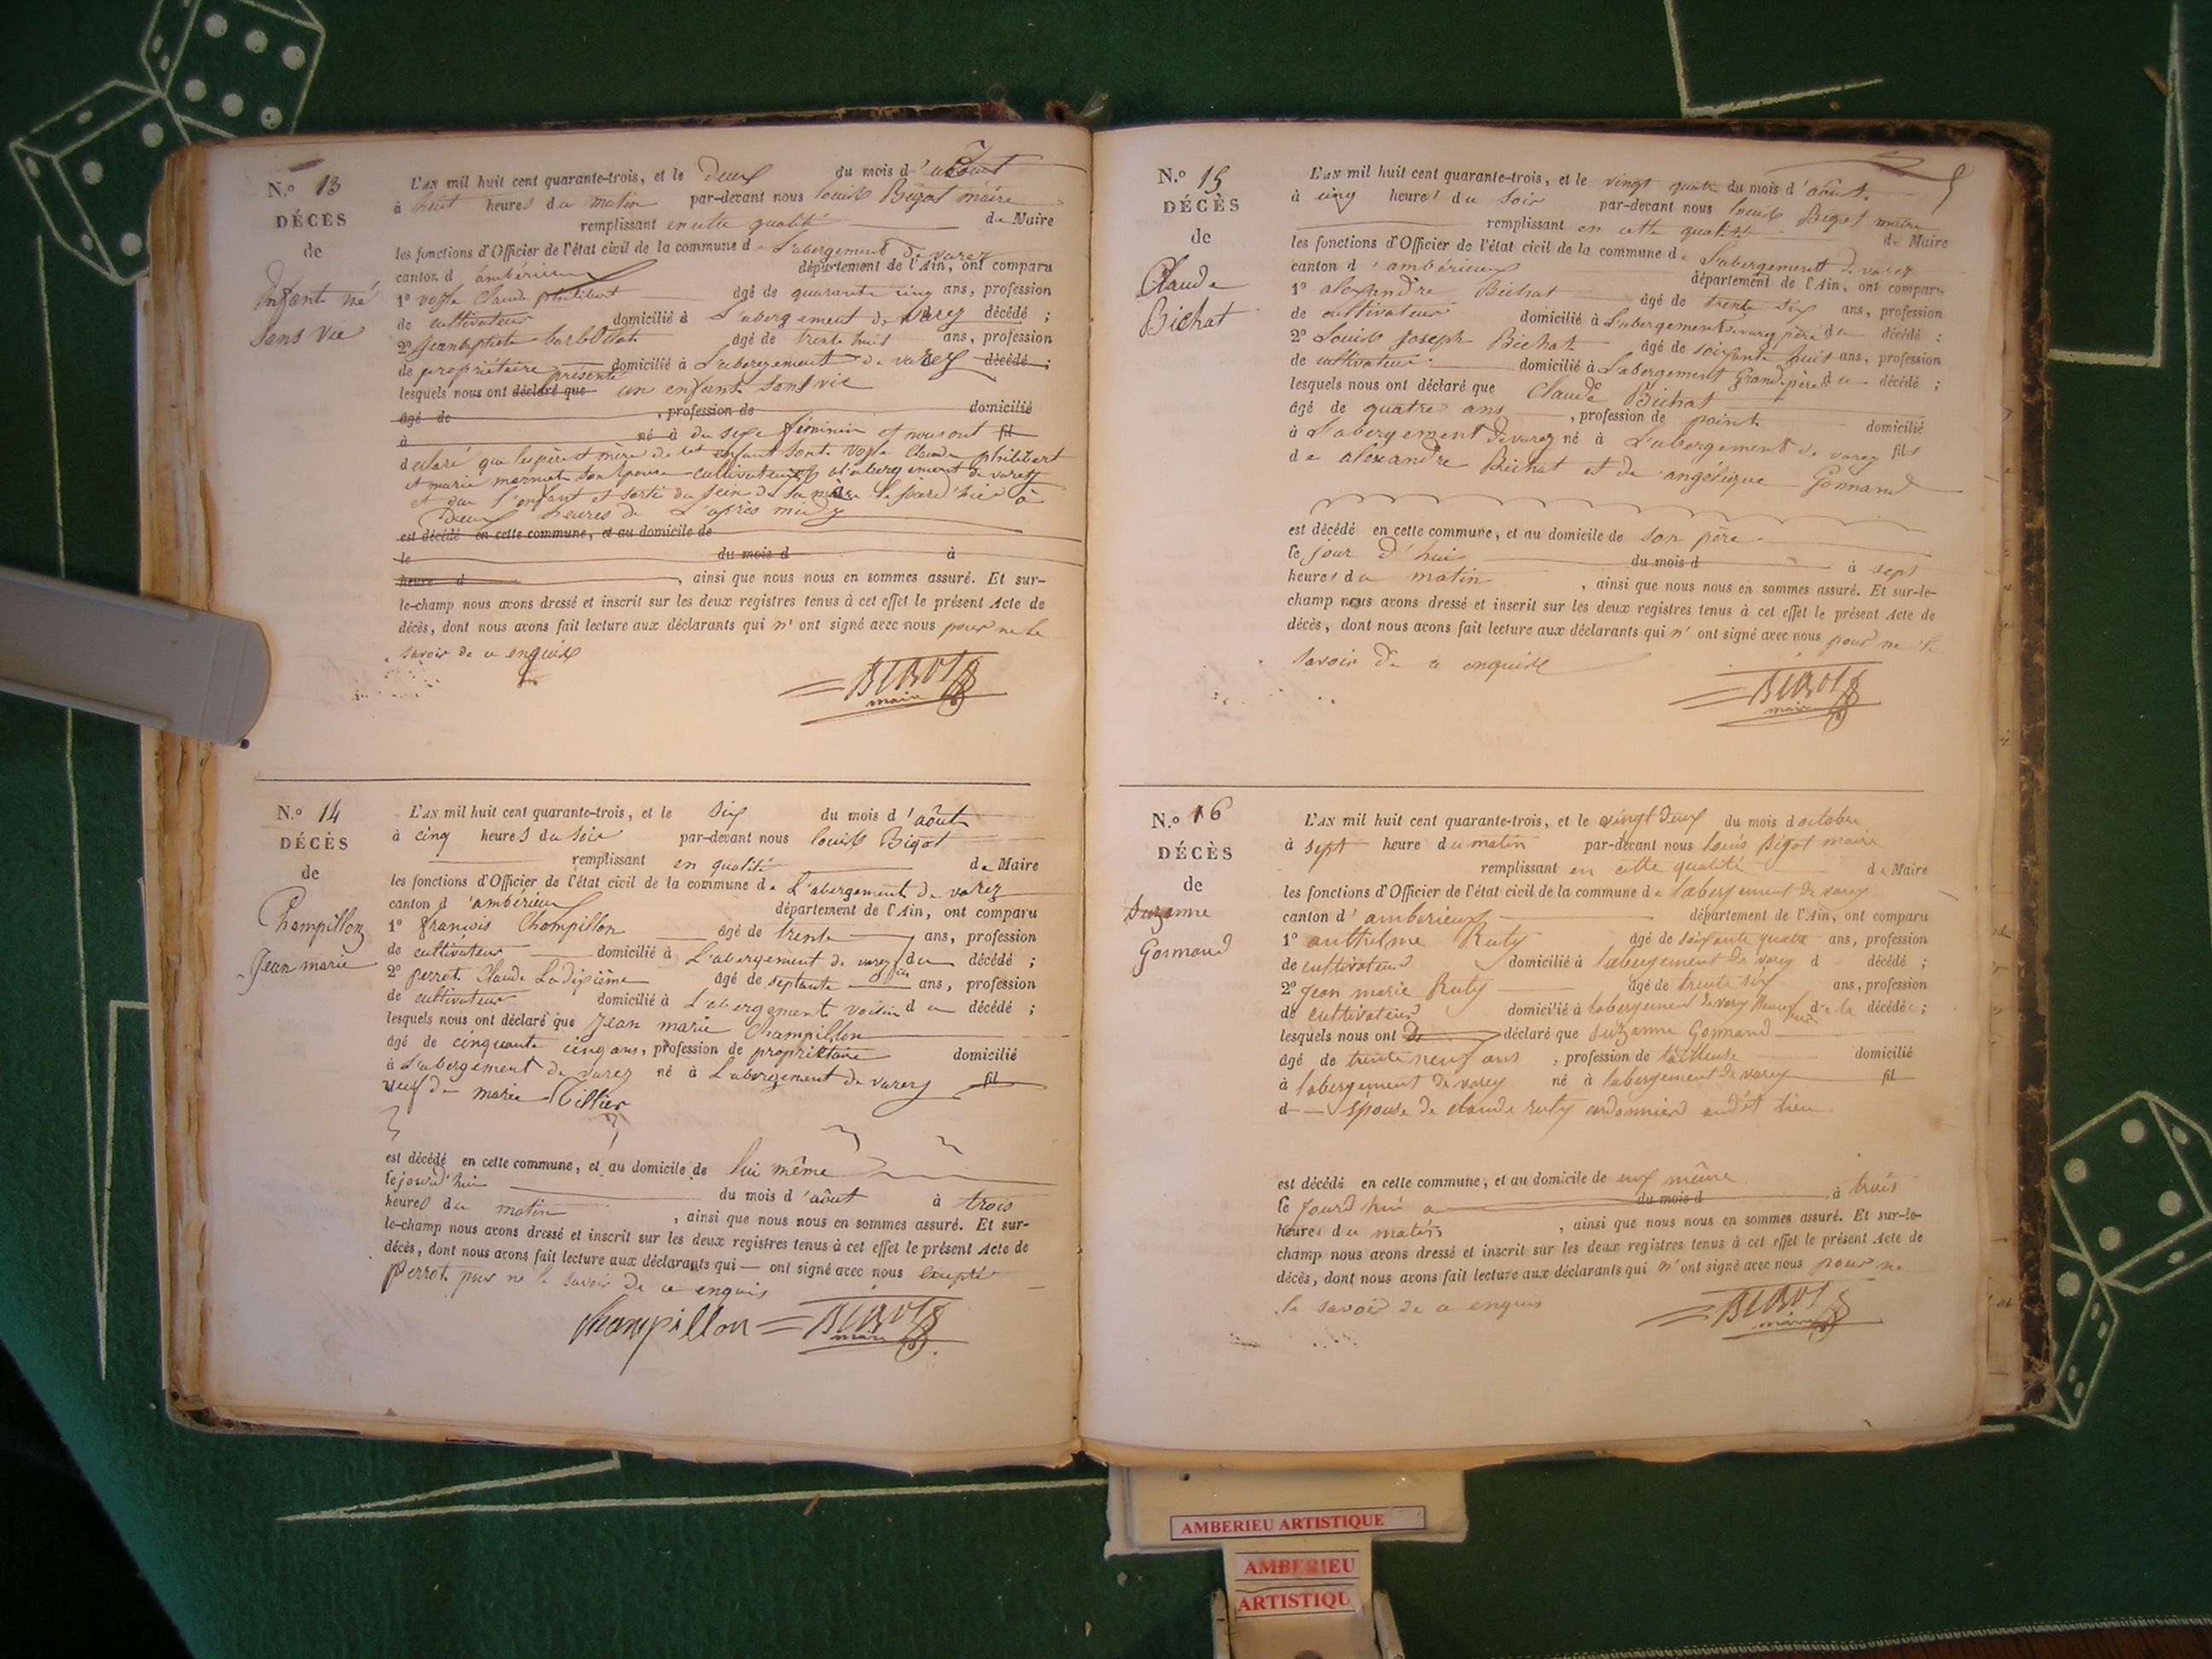 N.º 13
DÉCÈS
de
Enfant né
Sans vie
L'AN mil huit cent quarante-trois, et le Deux du mois d'aout
à huit heures du matin par-devant nous louis Bigot maire
remplissant en cette qualité de Maire
les fonctions d'Officier de l'état civil de la commune de L'abergement de varez
canton d'ambérieux département de l'Ain, ont comparu
1º Claude philibert âgé de quarante cinq ans, profession
de cultivateur domicilié à L'abergement de varey décédé ;
2º Jean baptiste âgé de trente huit ans, profession
de propriétaire domicilié à L'abergement de varey décédé ;
lesquels nous ont déclaré que présenté un enfant sans vie
âgé de , profession de domicilié
à né à du sexe féminin et nous ont fil
déclaré que les père et mère de cet enfant sont Claude philibert
et marie son épouse cultivateurs a l'abergement de varey
et que l'enfant est sorti du sein de sa mère le jour d'hier à
Deux heures de L'après midy
est décédé en cette commune, et au domicile de
le du mois d à
heure d , ainsi que nous nous en sommes assuré. Et sur-
le-champ nous avons dressé et inscrit sur les deux registres tenus à cet effet le présent Acte de
décès, dont nous avons fait lecture aux déclarants qui n'ont signé avec nous pour ne le
savoir de ce enquis
BIGOT
maire
N.º 14
DÉCÈS
de
Champillon
Jean marie
L'AN mil huit cent quarante-trois, et le six du mois d'août
à cinq heures du soir par-devant nous louis Bigot
remplissant en qualité de Maire
les fonctions d'Officier de l'état civil de la commune de L'abergement de varez
canton d'ambérieux département de l'Ain, ont comparu
1º françois Champillon âgé de trente ans, profession
de cultivateur domicilié à L'abergement de varey du décédé ;
2º perrot Claude âgé de septante ans, profession
de cultivateur domicilié à L'abergement voisin du décédé ;
lesquels nous ont déclaré que Jean marie Champillon
âgé de cinquante cinq ans, profession de propriétaire domicilié
à L'abergement de varey né à L'abergement de varey fil
veuf de marie Tillier
est décédé en cette commune, et au domicile de lui même
le jourd'hui du mois d'août à trois
heures du matin , ainsi que nous nous en sommes assuré. Et sur-
le-champ nous avons dressé et inscrit sur les deux registres tenus à cet effet le présent Acte de
décès, dont nous avons fait lecture aux déclarants qui — ont signé avec nous excepté
perrot pour ne le savoir de ce enquis
Champillon BIGOT
maire
N.º 15
DÉCÈS
de
Claude
Bichat
L'AN mil huit cent quarante-trois, et le vingt quatre du mois d'août
à cinq heures du soir par-devant nous louis Bigot maire
remplissant en cette qualité de Maire
les fonctions d'Officier de l'état civil de la commune de L'abergement de varey
canton d'ambérieux département de l'Ain, ont comparu
1º alexandre Bichat âgé de trente six ans, profession
de cultivateur domicilié à L'abergement de varey père du décédé :
2º Louis Joseph Bichat âgé de soixante huit ans, profession
de cultivateur domicilié à L'abergement Grand père du décédé ;
lesquels nous ont déclaré que Claude Bichat
âgé de quatre ans , profession de point domicilié
à L'abergement de varey né à L'abergement de varey fils
de alexandre Bichat et de angélique Gonnand
est décédé en cette commune, et au domicile de son père
le jour d'hui du mois d à sept
heures du matin , ainsi que nous nous en sommes assuré. Et sur-le-
champ nous avons dressé et inscrit sur les deux registres tenus à cet effet le présent Acte de
décès, dont nous avons fait lecture aux déclarants qui n'ont signé avec nous pour ne le
savoir de ce enquis
BIGOT
maire
N.º 16
DÉCÈS
de
Suzanne
Gonnand
L'AN mil huit cent quarante-trois, et le vingt deux du mois d octobre
à sept heure du matin par-devant nous louis Bigot maire
remplissant en cette qualité de Maire
les fonctions d'Officier de l'état civil de la commune de labergement de varey
canton d'amberieux département de l'Ain, ont comparu
1º anthelme Ruty âgé de soixante quatre ans, profession
de cultivateur domicilié à labergement de varey d décédé ;
2º Jean marie Ruty âgé de trente six ans, profession
de cultivateur domicilié à labergement de varey de la décédée ;
lesquels nous ont déclaré que Suzanne Gonnand
âgé de trente neuf ans , profession de tailleuse domicilié
à labergement de varey né à labergement de varey fil
d — épouse de claude ruty cordonnier audit lieu
est décédé en cette commune, et au domicile de eux même
le Jourd'hui du mois d à trois
heures du matin , ainsi que nous nous en sommes assuré. Et sur-le-
champ nous avons dressé et inscrit sur les deux registres tenus à cet effet le présent Acte de
décès, dont nous avons fait lecture aux déclarants qui n'ont signé avec nous pour ne
le savoir de ce enquis
BIGOT
maire
AMBERIEU ARTISTIQUE
AMBERIEU
ARTISTIQU